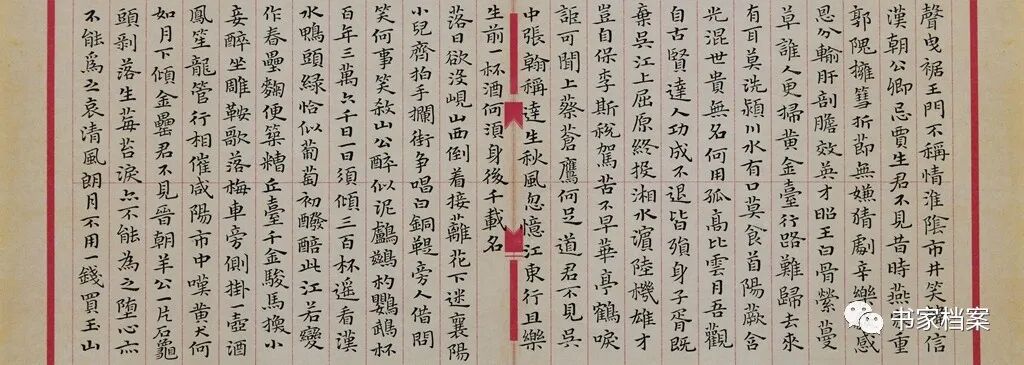 聲曳裾王門不稱情淮陰市井笑信
漢朝公卿忌賈生君不見昔時燕重
郭隗擁篲折節無嫌猜劇辛樂毅感
恩分輸肝剖膽效英才昭王白骨縈蔓
草誰人更掃黃金臺行路難歸去來
有耳莫洗潁川水有口莫食首陽蕨含
光混世貴無名何用孤高比雲月吾觀
自古賢達人功成不退皆殞身子胥既
棄吳江上屈原終投湘水濱陸機雄才
豈自保李斯稅駕苦不早華亭鶴唳
詎可聞上蔡蒼鷹何足道君不見吳
中張翰稱達生秋風忽憶江東行且樂
生前一杯酒何須身後千載名
落日欲沒峴山西倒着接蘺花下迷襄陽
小兒齊拍手攔街爭唱白銅鞮旁人借問
笑何事笑殺山公醉似泥鸕鷀杓鸚鵡杯
百年三萬六千日一日須傾三百杯遙看漢
水鴨頭綠恰似葡萄初醱醅此江若變
作春壘麴便築糟丘臺千金駿馬換小
妾醉坐雕鞍歌落梅車旁側掛壺酒
鳳笙龍管行相催咸陽市中嘆黃犬何
如月下傾金罍君不見晉朝羊公一片石龜
頭剝落生莓苔淚亦不能為之墮心亦
不能爲之哀清風朗月不用一錢買玉山
书家档案